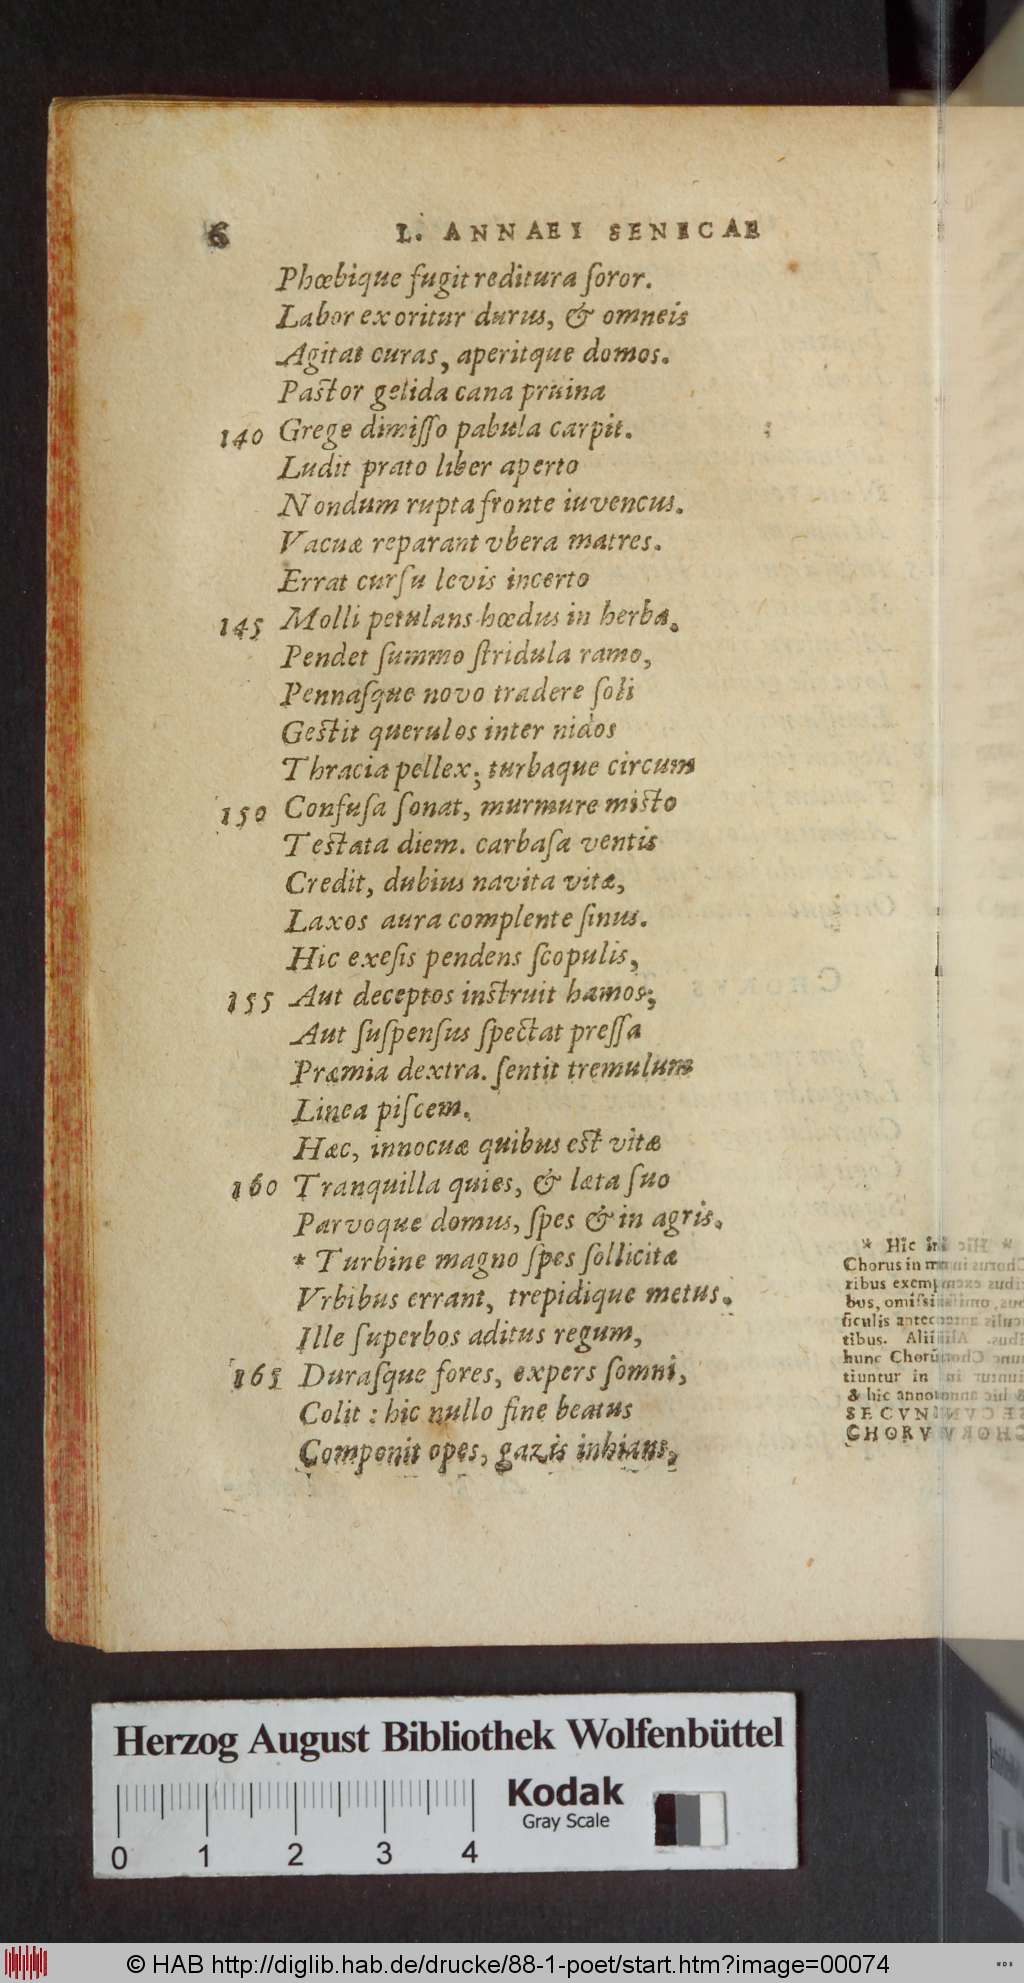 6 L. ANNAEI SENECAE
Phœbique fugit reditura ſoror.
Labor exoritur durus, & omneis
Agitat curas, aperitque domos.
Paſtor gelida cana pruina
140 Grege dimiſſo pabula carpit.
Ludit prato liber aperto
Nondum rupta fronte iuvencus.
Vacuæ reparant vbera matres.
Errat curſu levis incerto
145 Molli petulans hœdus in herba.
Pendet ſummo ſtridula ramo,
Pennaſque novo tradere ſoli
Geſtit querulos inter nidos
Thracia pellex; turbaque circum
150 Confuſa ſonat, murmure miſto
Teſtata diem. carbaſa ventis
Credit, dubius navita vitæ,
Laxos aura complente ſinus.
Hic exeſis pendens ſcopulis,
155 Aut deceptos inſtruit hamos;
Aut ſuſpenſus ſpectat preſſa
Præmia dextra. ſentit tremulum
Linea piſcem.
Hæc, innocuæ quibus eſt vitæ
160 Tranquilla quies, & læta ſuo
Parvoque domus, ſpes & in agris.
* Turbine magno ſpes ſollicitæ
Vrbibus errant, trepidique metus.
Ille ſuperbos aditus regum,
165 Duraſque fores, expers ſomni,
Colit : hic nullo fine beatus
Componit opes, gazis inhians,
* Hic
Chorus in
ribus
bus,
ficulis
tibus. Alii
hunc
tiuntur in
& hic
SECVN
CHORV
Herzog August Bibliothek Wolfenbüttel
Kodak
Gray Scale
0 1 2 3 4
© HAB http://diglib.hab.de/drucke/88-1-poet/start.htm?image=00074